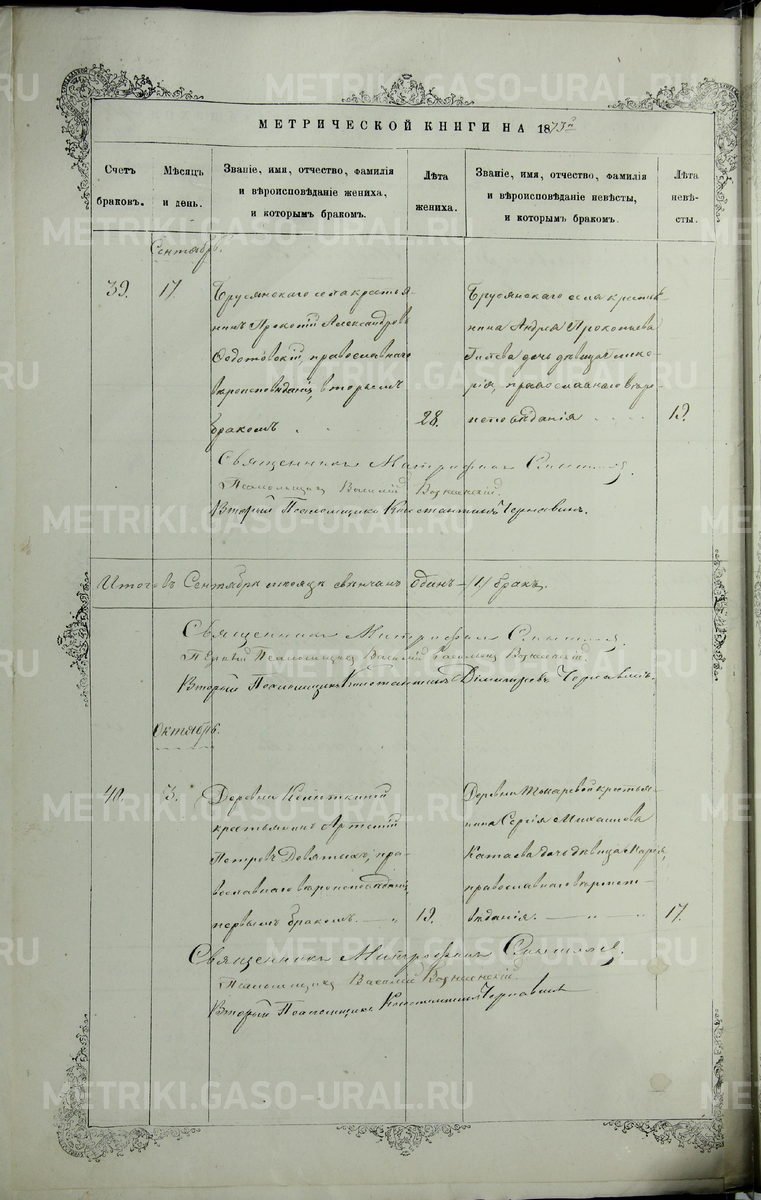 МЕТРИЧЕСКОЙ КНИГИ НА 1873й
Счетъ браковъ.
Мѣсяцъ и день.
Званіе, имя, отчество, фамилія и вѣроисповѣданіе жениха, и которымъ бракомъ.
Лѣта жениха.
Званіе, имя, отчество, фамилія и вѣроисповѣданіе невѣсты, и которымъ бракомъ.
Лѣта невѣсты.
Сентябрь.
39.
17
Брусянскаго села крестья-
нинъ Прокопій Александровъ
православнаго
вѣроисповѣданія, вторымъ
бракомъ
28.
Брусянскаго села крестья-
нина Андрея Прокопьева
дочь дѣвица Глике-
рія, православнаго вѣро-
исповѣданія
19.
Священникъ Митрофанъ
Псаломщикъ Василій
Второй Псаломщикъ Константинъ Чернавинъ.
Итого въ Сентябрѣ мѣсяцѣ вѣнчанъ одинъ (1) бракъ.
Священникъ Митрофанъ
Первый Псаломщикъ Василій
Второй Псаломщикъ Константинъ Димитріевъ Чернавинъ.
Октябрь.
40.
3.
Деревни
крестьянинъ Артемій
Петровъ Девятыхъ, пра-
вославнаго вѣроисповѣданія,
первымъ бракомъ.
19.
Деревни Токаревой крестья-
нина Сергія Михайлова
Катаева дочь дѣвица Марія,
православнаго вѣроиспо-
вѣданія.
17.
Священникъ Митрофанъ
Псаломщикъ Василій
Второй Псаломщикъ Константинъ Чернавинъ
METRIKI.GASO-URAL.RU